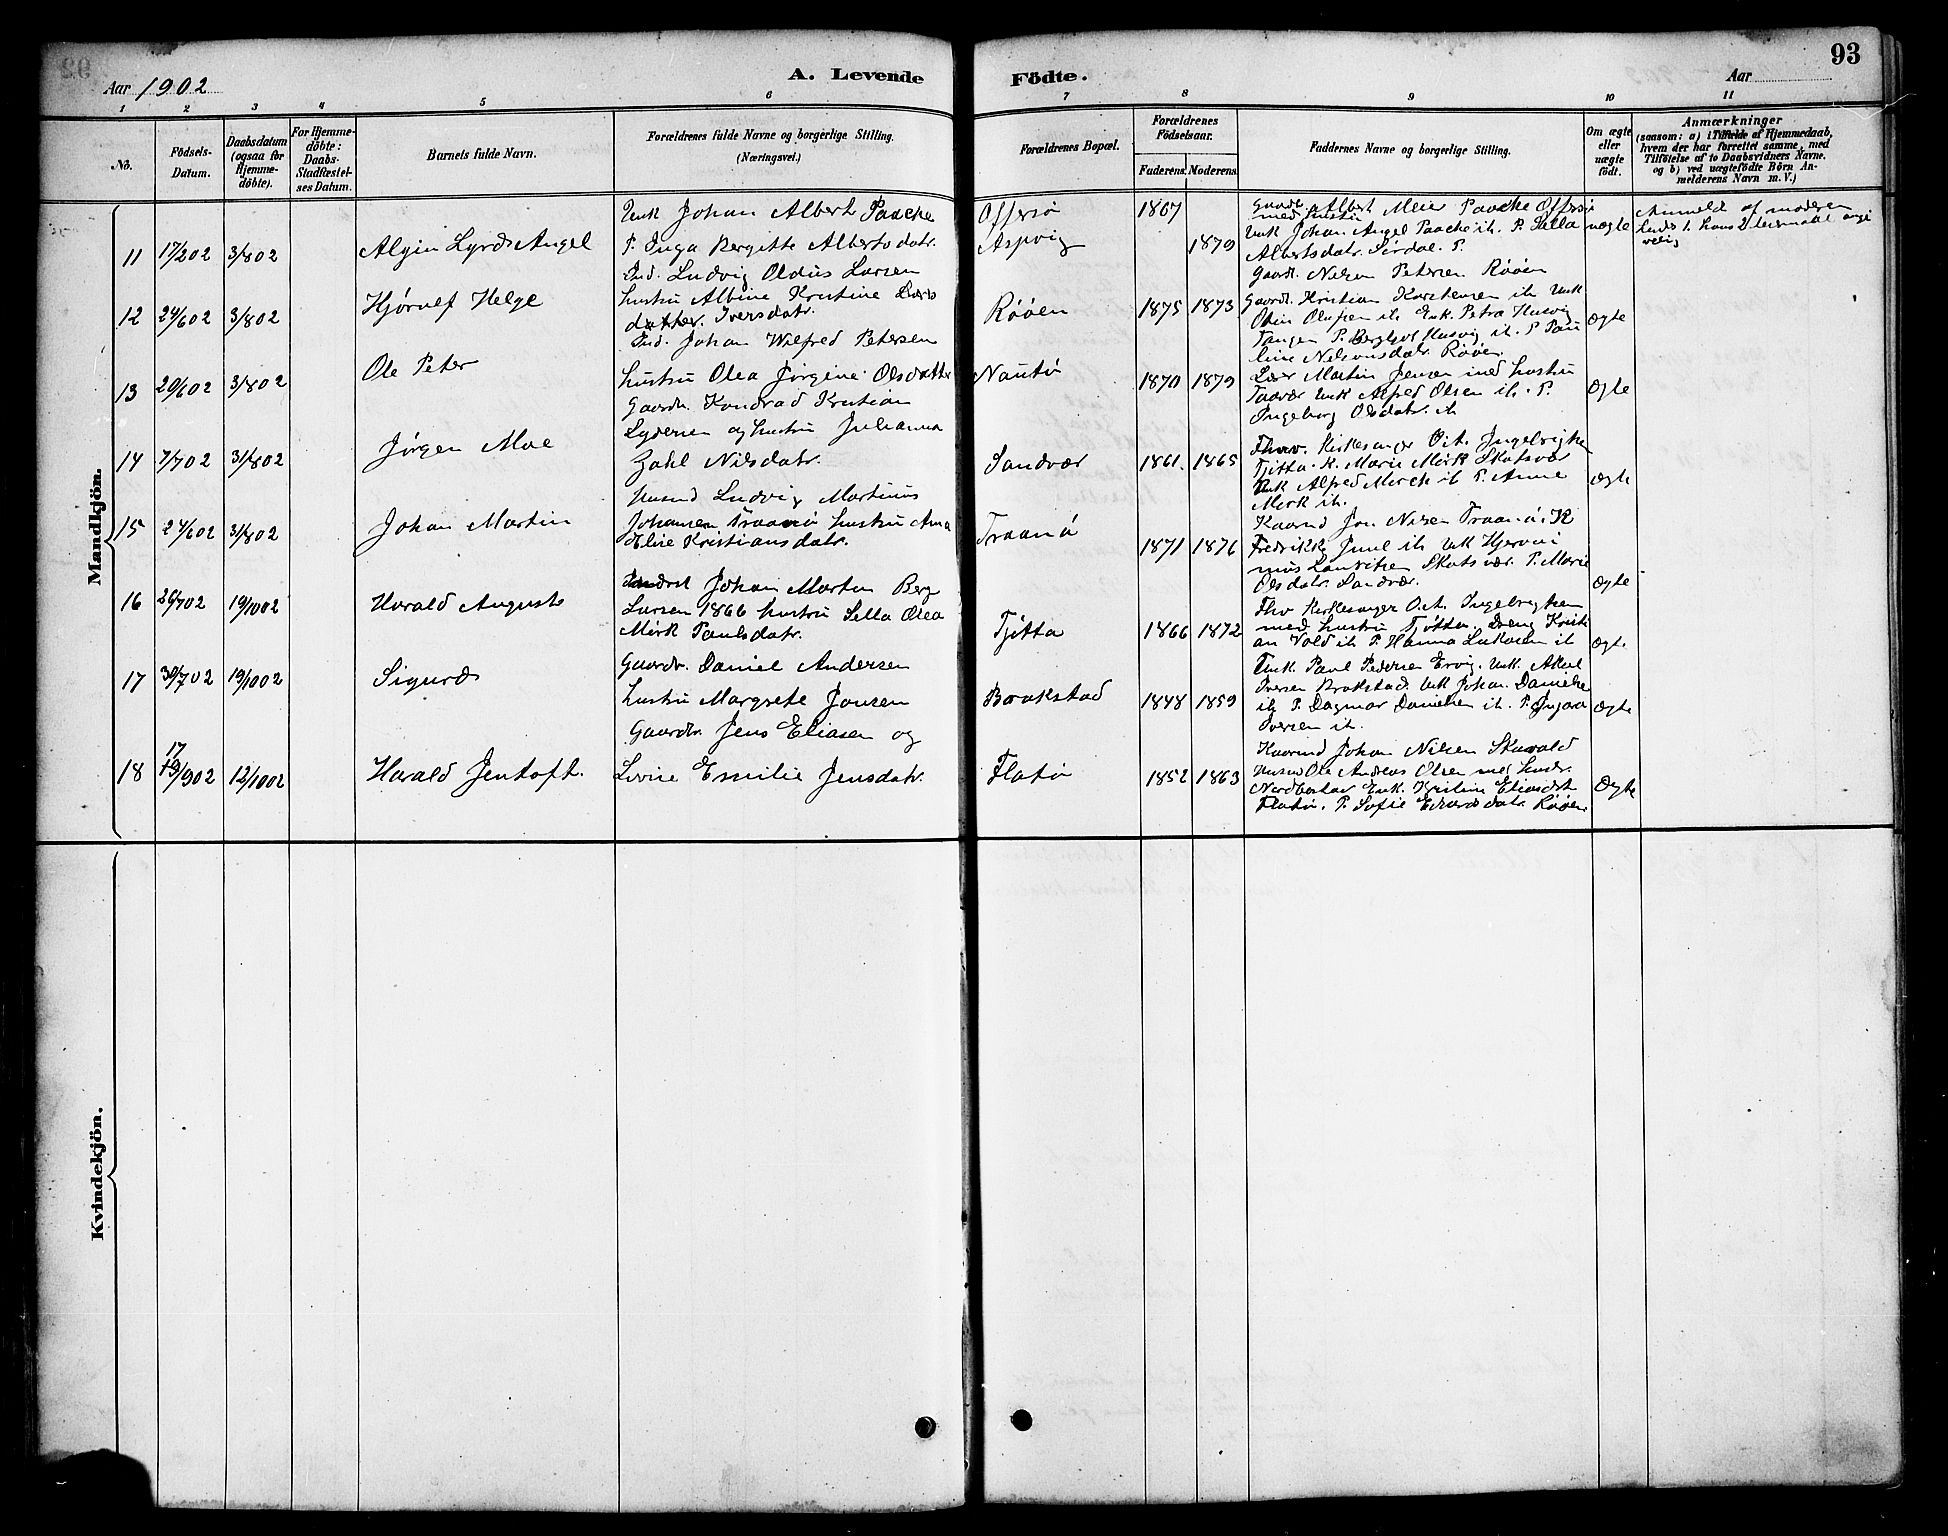 Aar 1902
A. Levende
Födte.
Aar
93
1 2 3 4 5 6 7 8 9 10 11
No.
Födsels-Datum.
Daabsdatum (ogsaa for Hjemmedöbte).
For Hjemmedöbte: Daabs-Stadfæstelses Datum.
Barnets fulde Navn.
Forældrenes fulde Navne og borgerlige Stilling. (Næringsvei.)
Forældrenes Bopæl.
Forældrenes Födselsaar.
Faderens. Moderens.
Faddernes Navne og borgerlige Stilling.
Om ægte eller uægte födt.
Anmærkninger
(saasom: a) i Tilfælde af Hjemmedaab, hvem der har forrettet samme, med Tilföielse af to Daabsvidners Navne, og b) ved uægtefödte Börn Anmelderens Navn m. V.)
Mandkjön.
11 17/2 02 3/8 02 Algin Lyrds Angel
Unk Johan Albert Paache
P. Inga Bergitte Albertsdatr.
Offersø
Aspvig
1867 1879
Gaardb. Albert Meier Paacke Offersø
med hustru
Unk Johan Angel Paache ib. P. Sella
Albertsdatr. Sørdal. P.
uægte
Anmeldt af moderen
12 24/6 02 3/8 02 Hjørulf Helge
Ind. Ludvig Oldus Larsen
hustru Albine Kristine Lars
datter. Iversdatr.
Røøen
1875 1873
Gaardb. Nilsen Petersen Røøen
Gaardb. Kristian Karstensen ib Unk
Odin Olufsen ib Enk. Petra Husvig
Tangen P. Bergljot Husvig ib. P Pau
line Nilsensdatr. Røøen
Ægte
13 20/6 02 3/8 02 Ole Peter
Ind. Johan Wilfred Petersen
hustru Olea Jørgine Olsdatter
Nautø
1870 1879
Lærer Martin Jensen med hustru
Taavær Unk Alfred Olsen ib. P.
Ingeborg Olsdatr. ib
Ægte
14 7/7 02 31/8 02 Jørgen Moe
Gaardb. Kondrad Kristian
Lydersen og hustru Julianna
Zahl Nilsdatr.
Sandvær
1861. 1865
Kirkesanger O.A. Ingebrigtsen
Tjøtta. K. Marie Mörk Skatsvær
Unk Alfred Mörck ib P. Anne
Mörk ib.
Ægte
15 24/6 02 31/8 02 Johan Martin
Husmd Ludvig Martinus
Johansen Traanø hustru Ana
Elise Kristiansdatr.
Traanø
1871 1876
Kaarmd Jon Nilsen Traanø. K
Fredrikke Juul ib Unk Hjerøni
mus Lauritsen Skatsvær. P. Marie
Olsdatr. Sandvær.
Ægte
16 26/7 02 19/10 02 Harald August
Johan Morten Berg
Larsen 1866 hustru Sella Olea
Mörk Paulsdatr.
Tjøtta
1866 1872
Kirkesanger O.A. Ingebrigtsen
med hustru Tjøtta. Dreng Kristi
an Vold ib P. Hanna Lukasen ib
Ægte
17 30/7 02 19/10 02 Sigurd
Gaardb. Daniel Andersen
hustru Margrete Jonsen
Brakstad
1848 1859
Unk. Paul Pedersen Ervig. Unk Aksel
Iversen Brakstad. Unk Johan Danielse
ib P. Dagmar Danielsen ib. P. Ingara
Iversen ib.
Ægte
18 17 19/9 02 12/10 02 Harald Jentoft.
Gaardb. Jens Eliasen og
Lovise Emilie Jensdatr.
Flatø
1852 1863
Kaarmd Johan Nilsen Skarvald
Husmd Ole Andreas Olsen med hustr.
Enk. Kristine Eliasdtr
Flatø. P. Sofie Edvardsdatr. Røøen
Ægte
Kvindekjön.